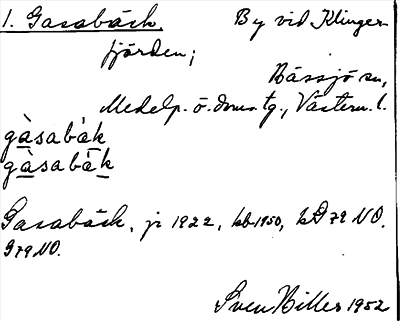 1. Gasabäck, By vid Klinger-
fjärden;
Hässjö sn,
Medelp. ö. domstg., Västern. l.
gàsabàk
gàsabàk
Gasabäck, js 1922, kb 1950, kD 79 NO.
G 79 NO.
Sven Hiller 1952